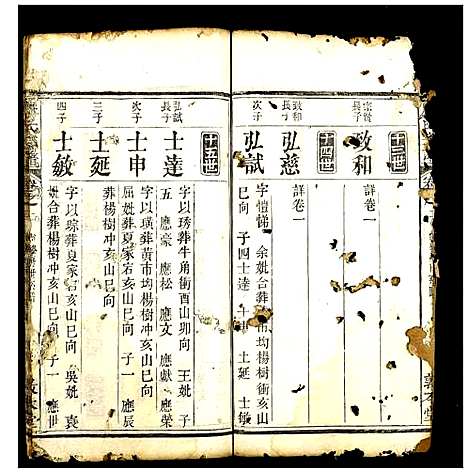 十三世
宗賢長子
政和
詳卷一
十四世
政和長子
弘慈
詳卷一
次子
弘試
字愷悌 余妣合葬黃市均楊樹衝亥山
巳向 子四士達 士申 士延 士敏
十五世
弘試長子
士達
字以琇葬牛角衝酉山卯向 王妣 子
五 應豪 應松 應文 應獻 應榮
次子
士申
字以璜葬黃市均楊樹冲亥山巳向
屈妣葬夏家宕亥山巳向 子一 應辰
三子
士延
葬楊樹冲亥山巳向
四子
士敏
字以琼葬夏家宕亥山巳向 吳妣 袁
妣合葬楊樹冲亥山巳向 子一 應世
敦本堂